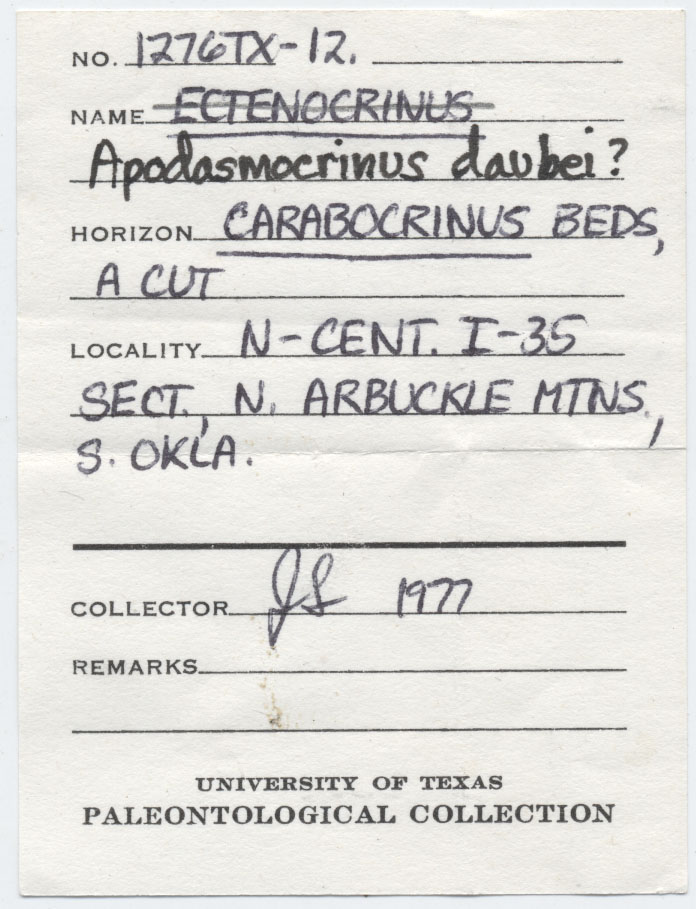 NO. 1276TX-12.
NAME ECTENOCRINUS
Apodasmocrinus daubei?
HORIZON CARABOCRINUS BEDS,
A CUT
LOCALITY N-CENT. I-35
SECT., N. ARBUCKLE MTNS.,
S. OKLA.
COLLECTOR JS 1977
REMARKS
UNIVERSITY OF TEXAS
PALEONTOLOGICAL COLLECTION